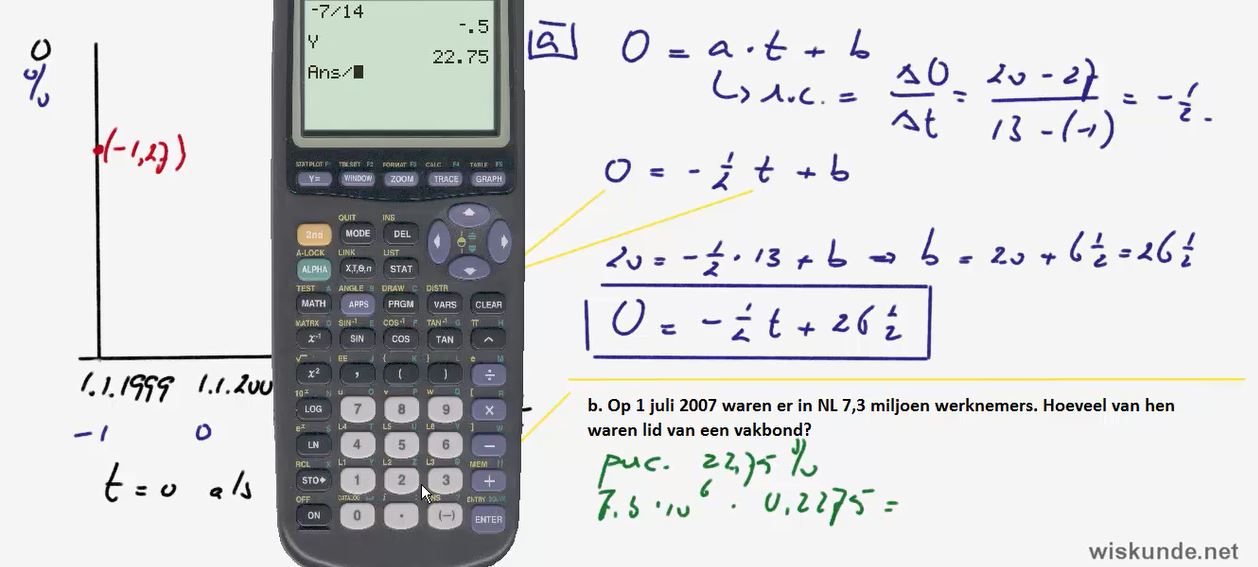 O
%
(-1,27)
1.1.1999 1.1.200
-1 0
t = 0 als
-7/14
-.5
Y
22.75
Ans/
STATPLOT F1 TBLSET F2 FORMAT F3 CALC F4 TABLE F5
Y= WINDOW ZOOM TRACE GRAPH
QUIT INS
2nd MODE DEL
A-LOCK LINK LIST
ALPHA X,T,Θ,n STAT
TEST A ANGLE B DRAW C DISTR
MATH APPS PRGM VARS CLEAR
MATRX D SIN⁻¹ E COS⁻¹ F TAN⁻¹ G π H
x⁻¹ SIN COS TAN ^
√ I EE J { K } L e M
x² , ( ) ÷
10ˣ N u O v P w Q [ R
LOG 7 8 9 ×
eˣ S L4 T L5 U L6 V ] W
LN 4 5 6 −
RCL X L1 Y L2 Z L3 θ MEM "
STO▸ 1 2 3 +
OFF CATALOG i ANS ENTRY SOLVE
ON 0 . (−) ENTER
a O = a · t + b
↳ r.c. = ΔO/Δt = 20 - 27/13 - (-1) = -1/2.
O = -1/2 t + b
20 = -1/2 · 13 + b ⇒ b = 20 + 6 1/2 = 26 1/2
O = -1/2 t + 26 1/2
b. Op 1 juli 2007 waren er in NL 7,3 miljoen werknemers. Hoeveel van hen
waren lid van een vakbond?
22,75 %
7.3 · 10⁶ · 0.2275 =
wiskunde.net